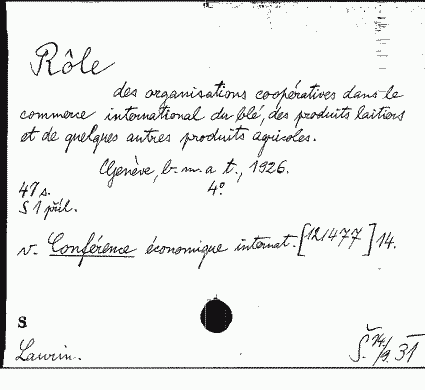 Rôle
des organisations coopératives dans le
commerce international du blé, des produits laitiers
et de quelques autres produits agricoles.
Genève, b. m. a t., 1926.
47 s. 4°
S 1 příl.
v. Conférence économique internat. [121477] 14.
S
Laurin.
Š. 14/9. 31